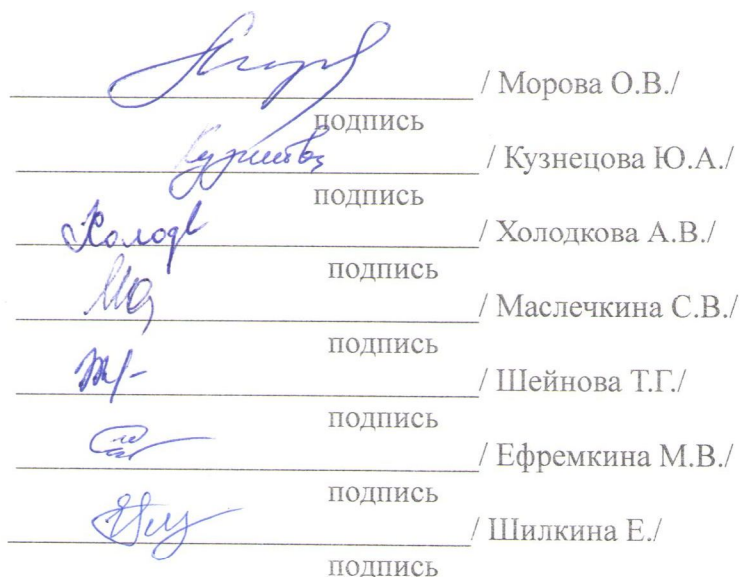 / Морова О.В./
подпись
/ Кузнецова Ю.А./
подпись
/ Холодкова А.В./
подпись
/ Маслечкина С.В./
подпись
/ Шейнова Т.Г./
подпись
/ Ефремкина М.В./
подпись
/ Шилкина Е./
подпись